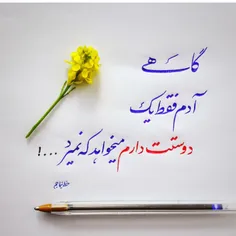 گاهے
آدم فقط یک
دوستت دارم میخواهد که نمیرد ...!